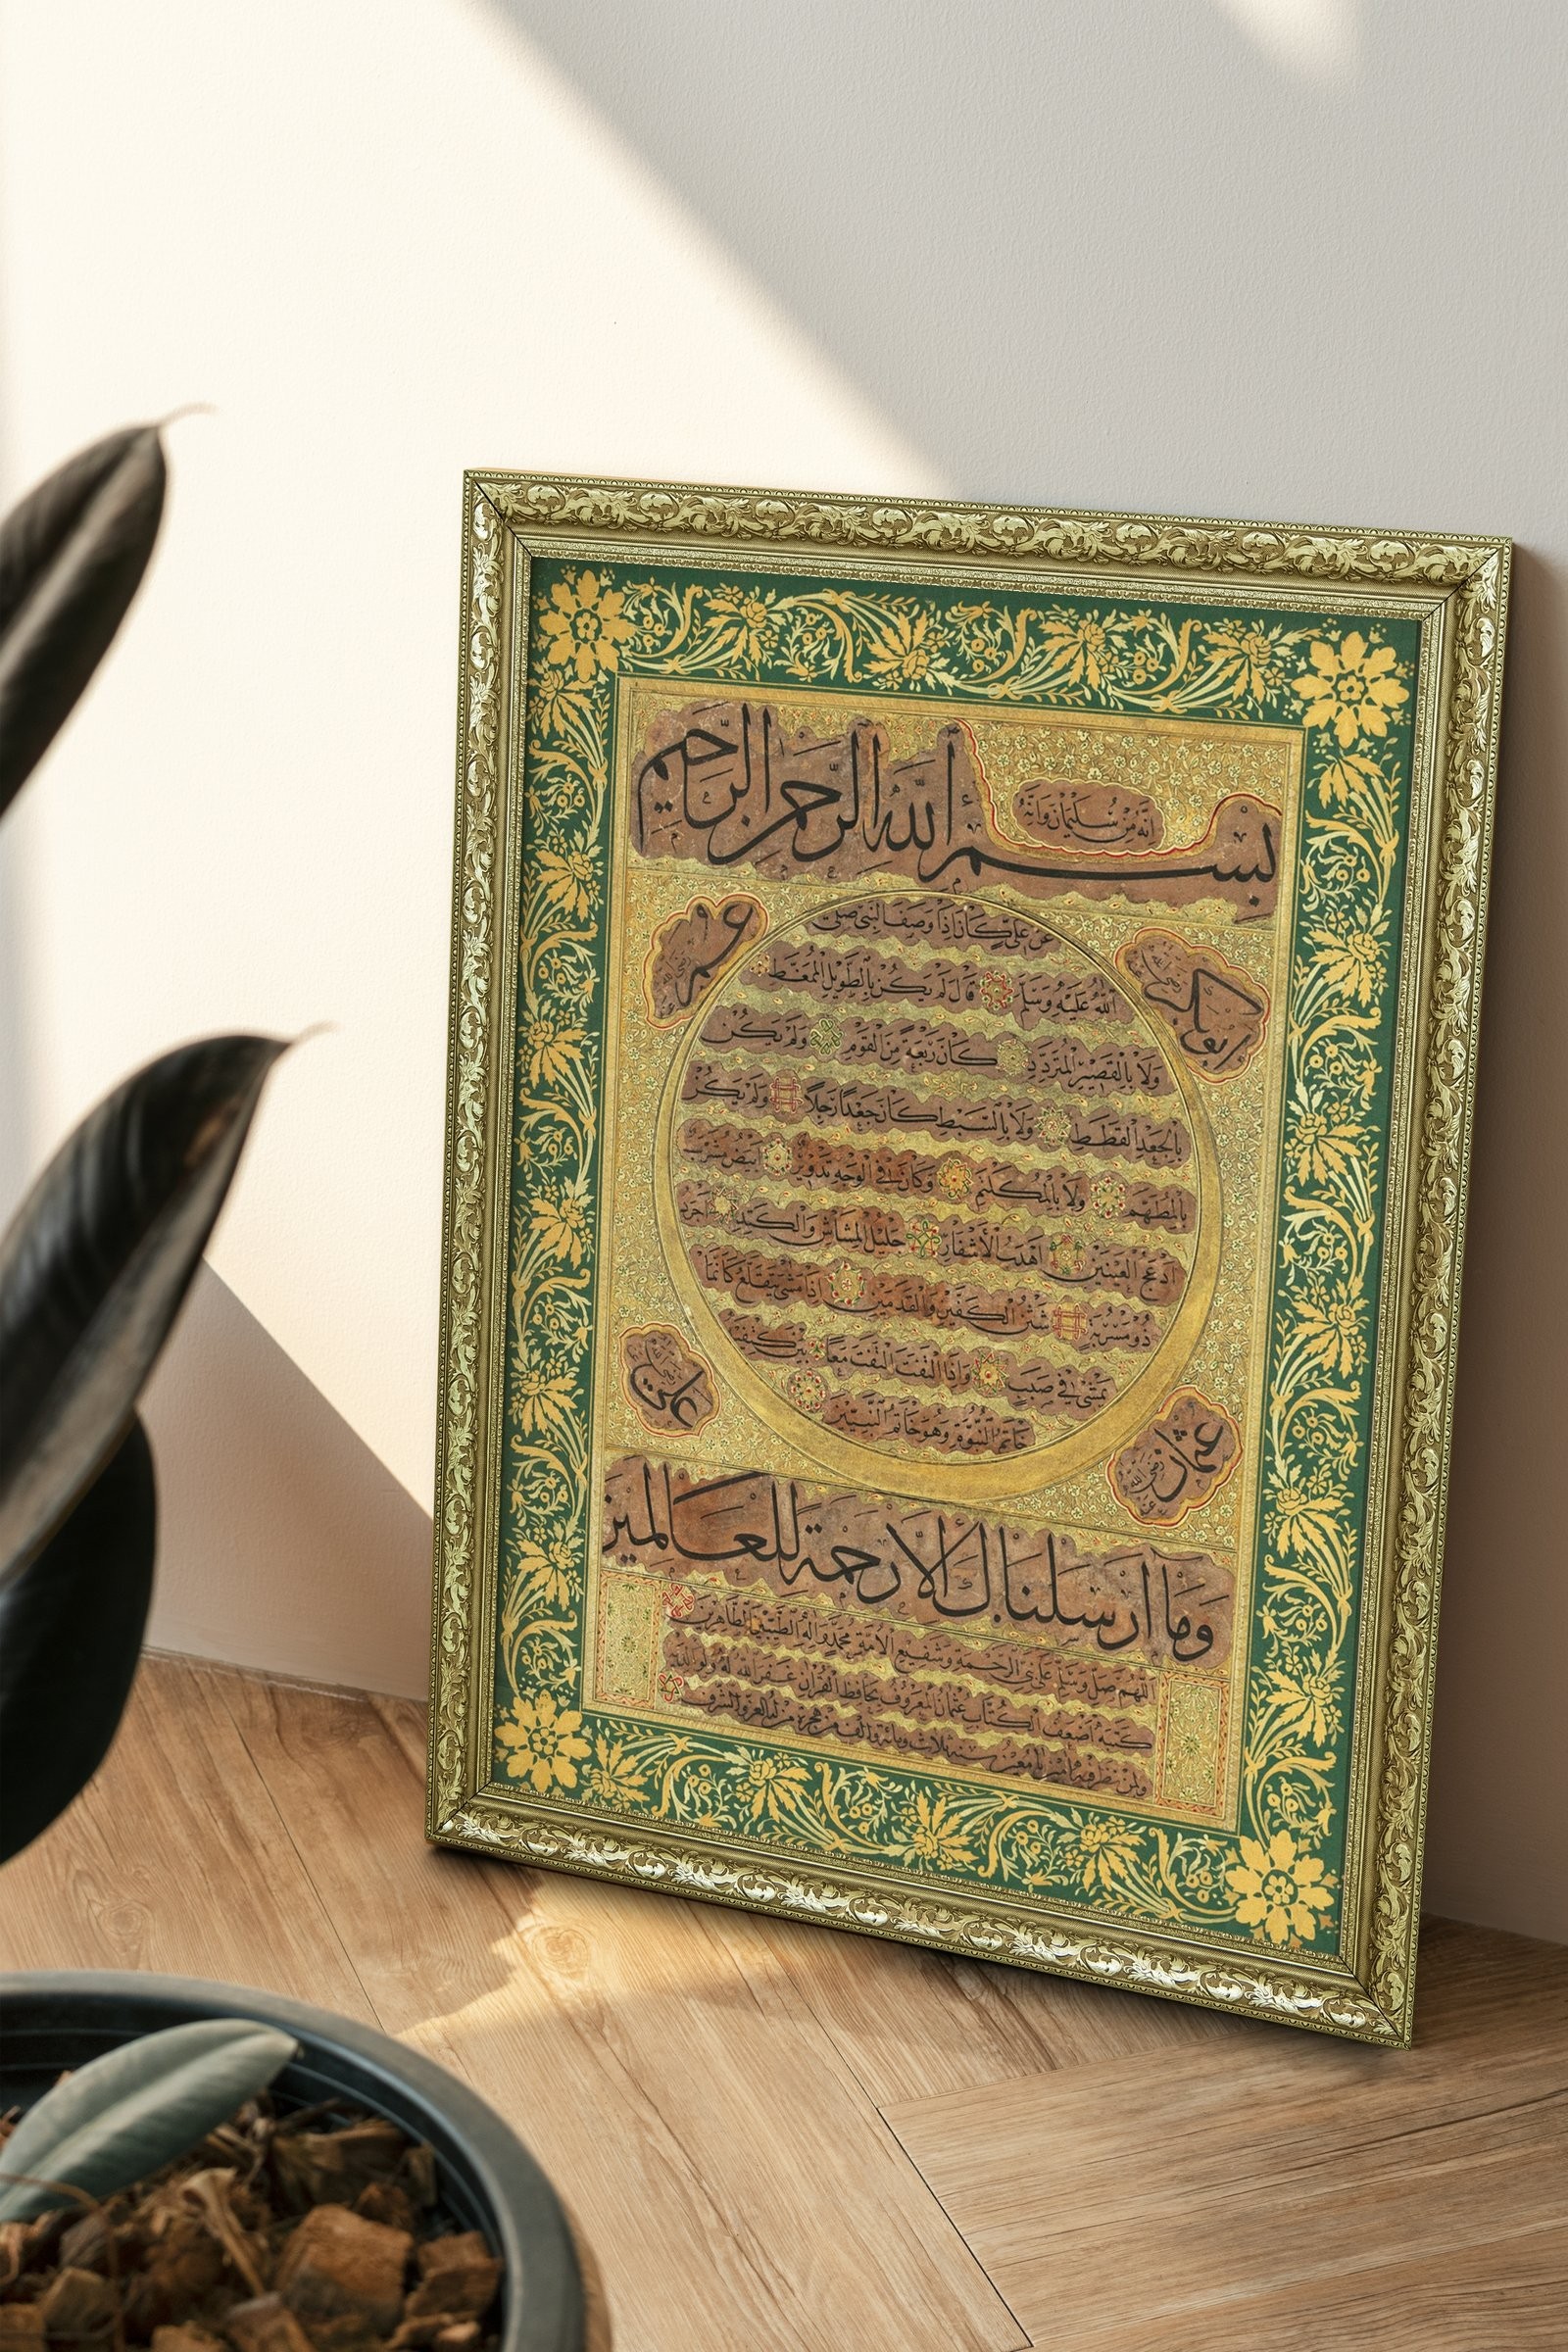 انه من سليمان وانه
بسم الله الرحمن الرحيم
ابو بكر رضي الله عنه
عمر رضي الله عنه
عن علي كان اذا وصف النبي صلى
الله عليه وسلم قال لم يكن بالطويل الممغط
ولا بالقصير المتردد كان ربعة من القوم ولم يكن
بالجعد القطط ولا بالسبط كان جعدا رجلا ولم يكن
بالمطهم ولا بالمكلثم وكان في الوجه تدوير ابيض مشرب
ادعج العينين اهدب الاشفار جليل المشاش والكتد اجرد
ذو مسربة شثن الكفين والقدمين اذا مشى يتقلع كانما
يمشي في صبب واذا التفت التفت معا بين كتفيه
خاتم النبوة وهو خاتم النبيين
عثمان رضي الله عنه
علي رضي الله عنه
وما ارسلناك الا رحمة للعالمين
اللهم صل وسلم على نبي الرحمة وشفيع الامة محمد واله الطيبين الطاهرين
كتبه اضعف الكتاب عثمان المعروف بحافظ القرآن غفر الله له ولوالديه
ولمن نظر فيه امين يا معين سنة ثلاث ومائة والف من هجرة من له العز والشرف